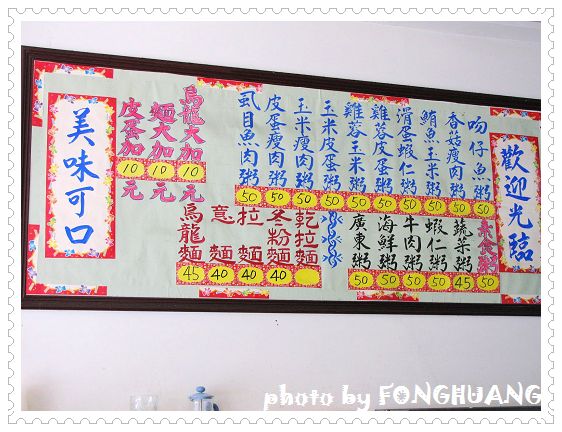 歡迎光臨
吻仔魚粥 50
香菇瘦肉粥 50
鮪魚玉米粥 50
滑蛋蝦仁粥 50
雞蓉皮蛋粥 50
雞蓉玉米粥 50
玉米皮蛋粥 50
玉米瘦肉粥 50
皮蛋瘦肉粥 50
虱目魚肉粥 50
烏龍大加10元
麵大加10元
皮蛋加10元
素食粥 50
蔬菜粥 45
蝦仁粥 50
牛肉粥 50
海鮮粥 50
廣東粥 50
乾拉麵
冬粉麵 40
拉麵 40
意麵 40
烏龍麵 45
美味可口
photo by FONGHUANG